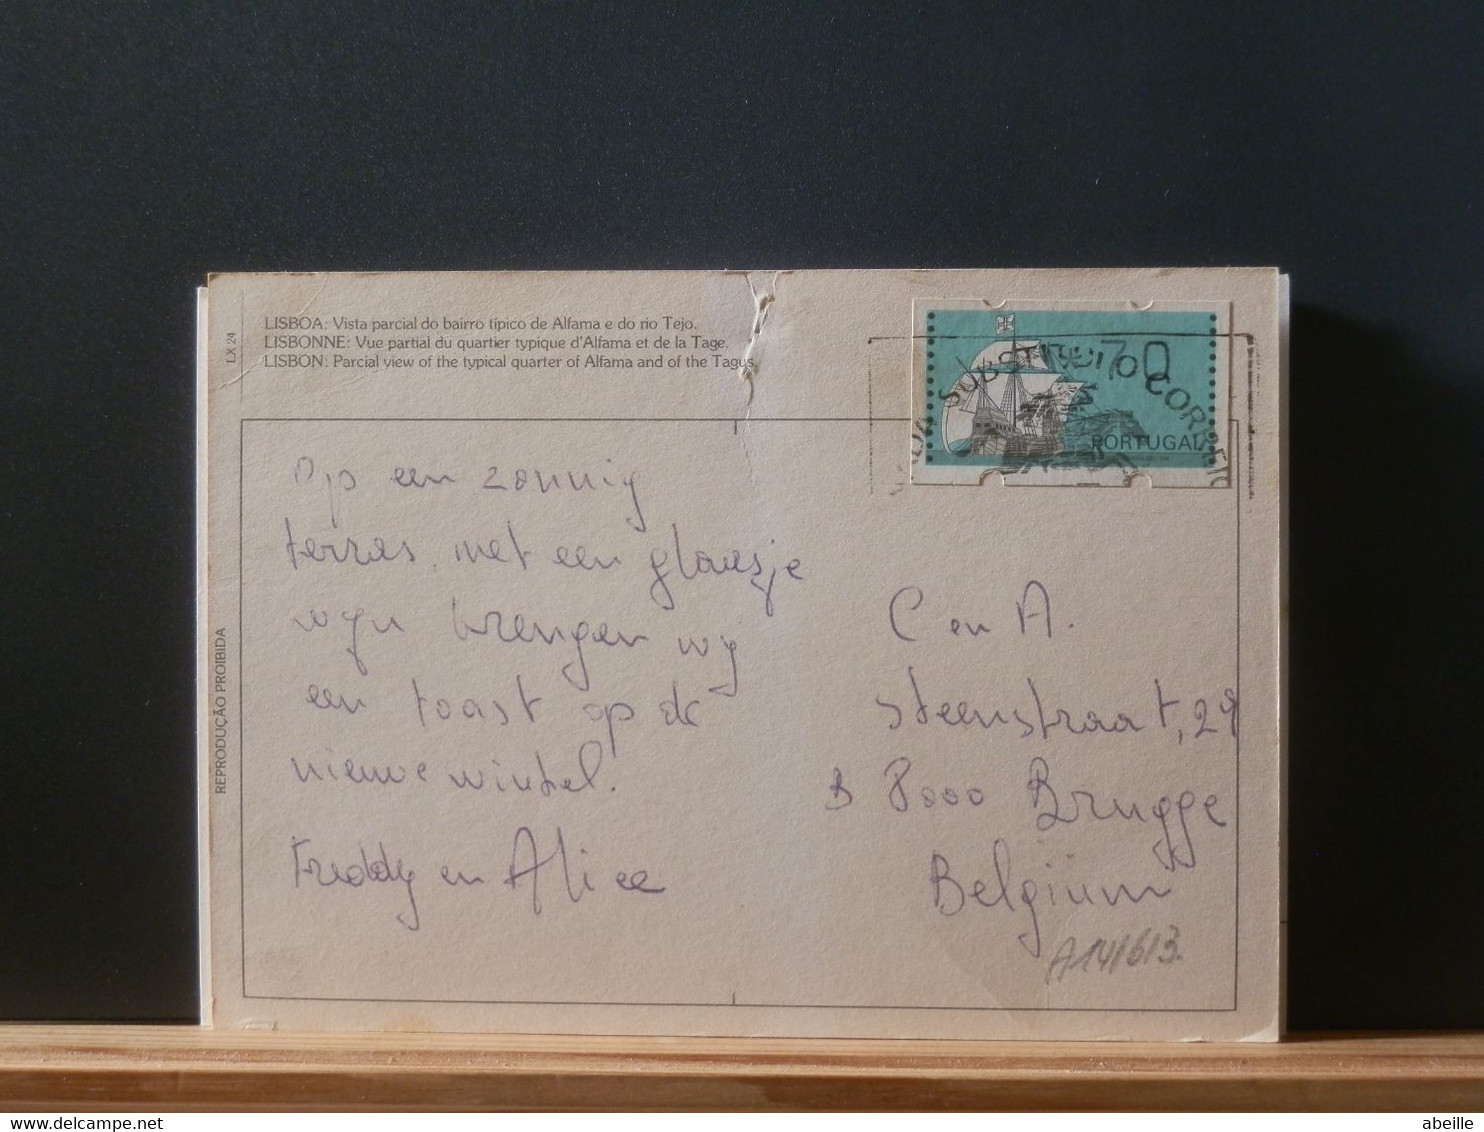 LISBOA: Vista parcial do bairro típico de Alfama e do rio Tejo.
LISBONNE: Vue partial du quartier typique d'Alfama et de la Tage.
LISBON: Parcial view of the typical quarter of Alfama and of the Tagus.
LX 24
REPRODUÇÃO PROIBIDA
70
PORTUGAL
SUBSTITUI O CORREIO
Op een zonnig
terras met een glaasje
wijn brengen wij
een toast op de
nieuwe winkel.
Freddy en Alice
C en A.
Steenstraat, 29
B 8000 Brugge
Belgïum
A14/613.
abeille